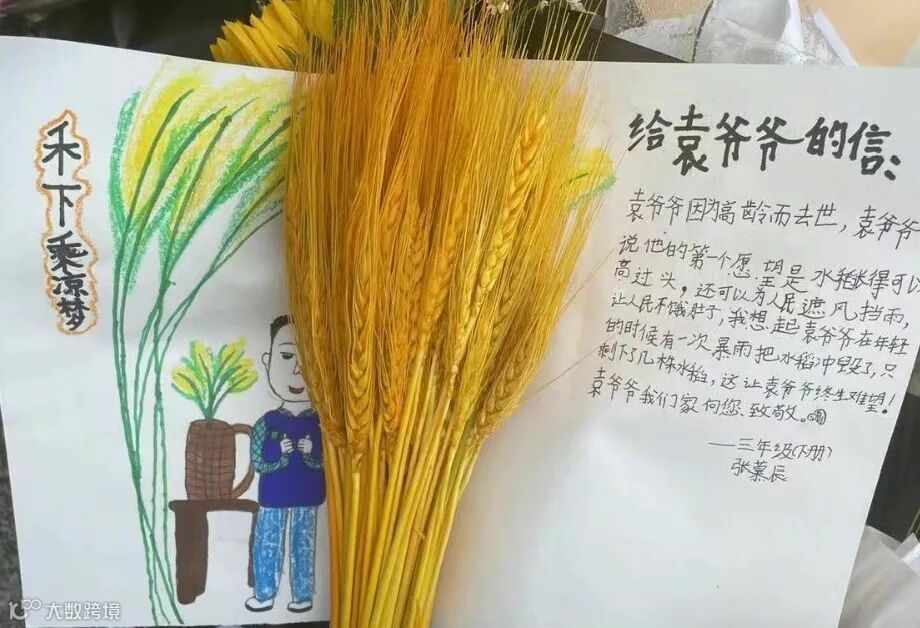 禾下乘凉梦
给袁爷爷的信:
袁爷爷因为高龄而去世，袁爷爷
说他的第一个愿望是水稻长得可以
高过头，还可以为人民遮风挡雨，
让人民不饿肚子，我想起袁爷爷在年轻
的时候有一次暴雨把水稻冲毁了，只
剩下了几株水稻，这让袁爷爷终生难望！
袁爷爷我们家向您致敬。
——三年级(下册)
张慕辰
大数跨境